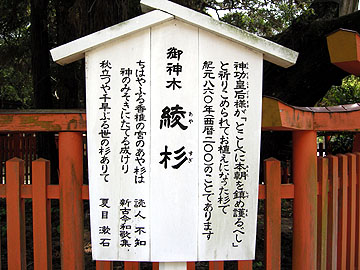 神功皇后様が、「とこしへに本朝を鎮め護るべし」
と祈りこめられてお植えになった杉で
紀元八六〇年(西暦二〇〇)のことであります
御神木
綾杉
あや
すぎ
ちはやふる香椎の宮のあや杉は
神のみそぎにたてる成けり
読人不知
新古今和歌集
秋立つや千早ぶる世の杉ありて
夏目漱石